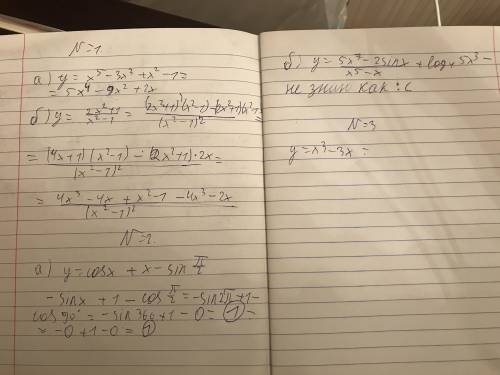 N=1.
а) y = x⁵ - 3x³ + x² - 1 =
= 5x⁴ - 9x² + 2x
б) y = (2x²+1)/(x²-1) = ((2x²+1)'(x²-1) - (2x²+1)(x²-1)/(x²-1)² =
= ((4x+1)(x²-1) - (2x²+1)·2x)/(x²-1)² =
= (4x³ - 4x + x² - 1 - 4x³ - 2x)/(x²-1)²
N=2.
а) y = cosx + x - sin π/2
- sinx + 1 - cos π/2 = - sin2π + 1 -
cos 90° = - sin 360 + 1 - 0 = 1 =
= -0 + 1 - 0 = 1
б) y = (5x⁷ - 2sinx)/(x⁵ - x) + log₄ 5x³ -
не знаю как :с
N=3
y = x³ - 3x =